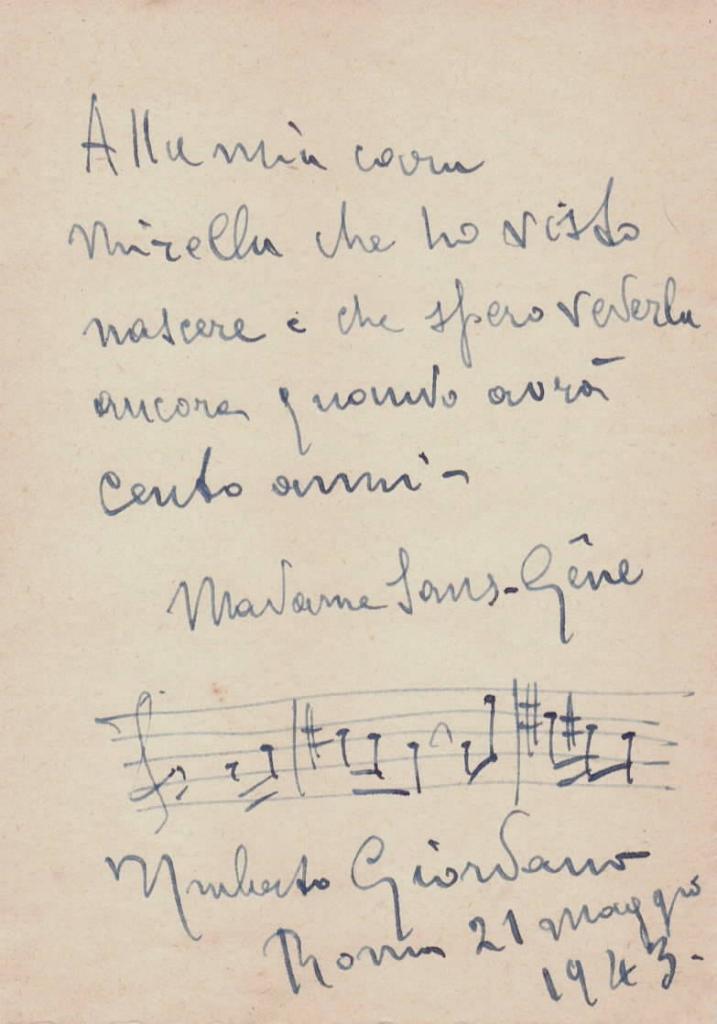 Alla mia cara
Mirella che ho visto
nascere e che spero vederla
ancora quando avrà
cento anni -
Madame Sans-Gêne
Umberto Giordano
Roma 21 Maggio
1943.